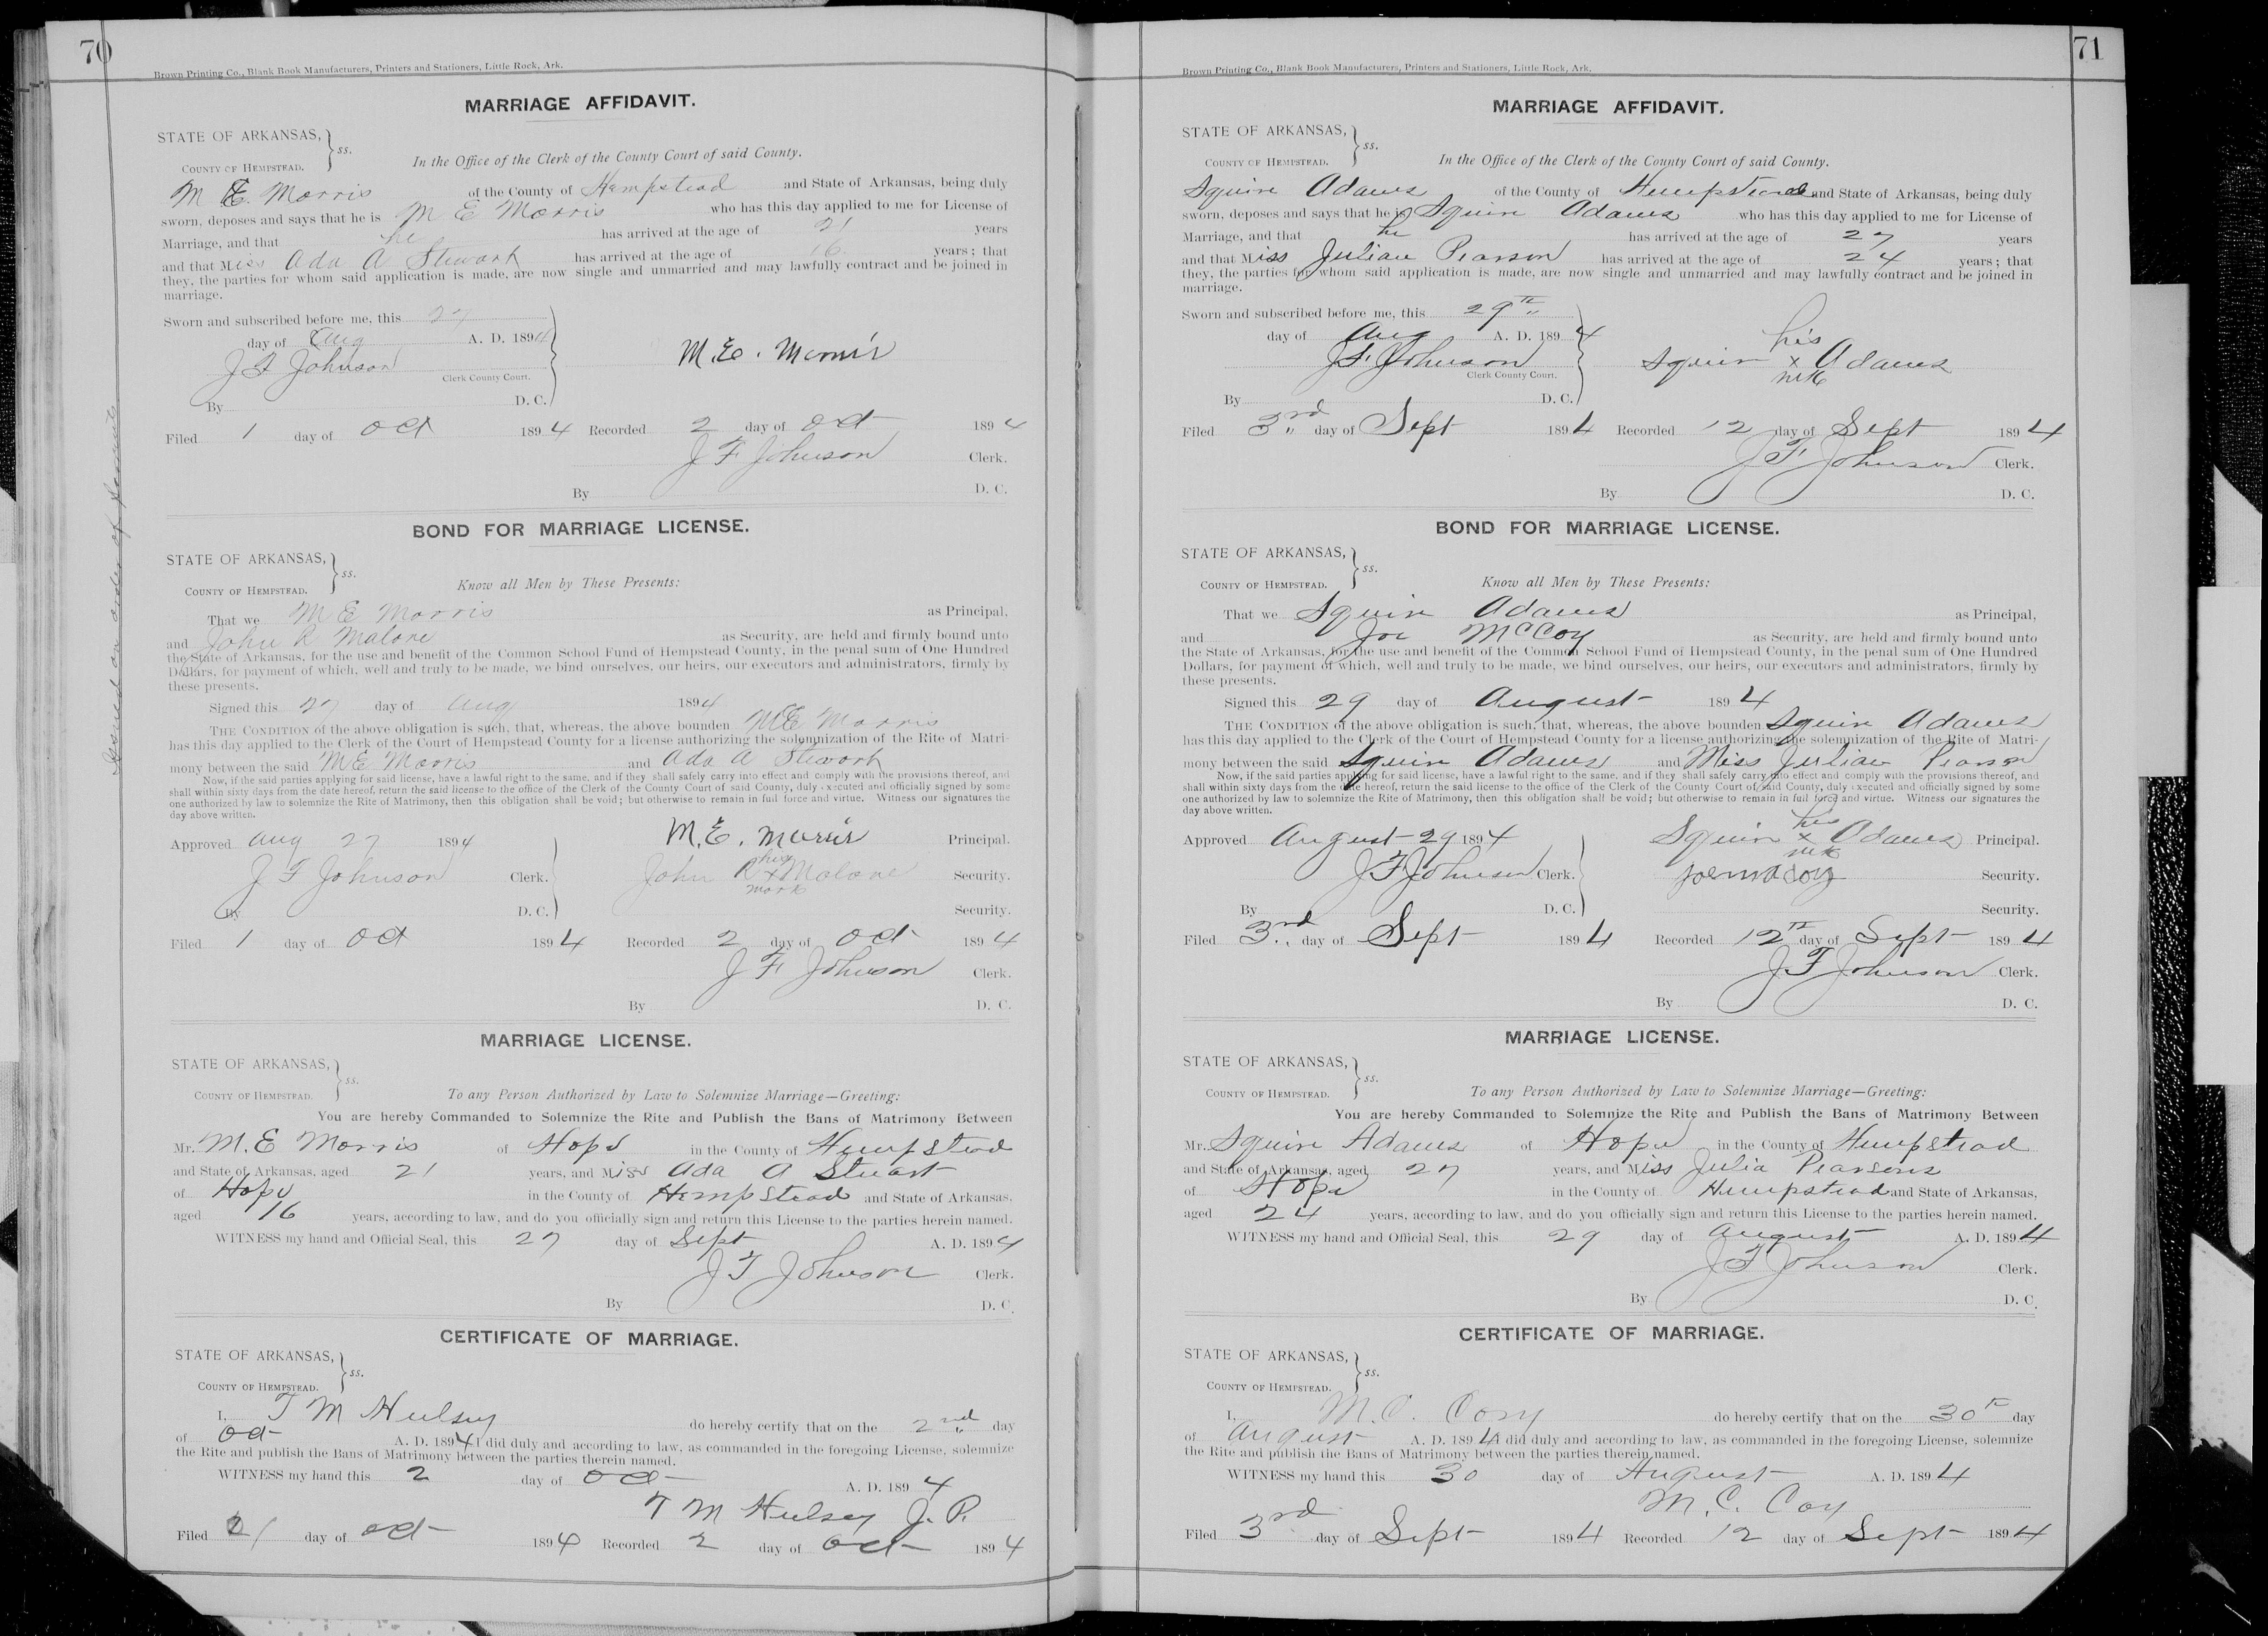 70
Brown Printing Co., Blank Book Manufacturers, Printers and Stationers, Little Rock, Ark.
MARRIAGE AFFIDAVIT.
STATE OF ARKANSAS,
COUNTY OF HEMPSTEAD. } ss.
In the Office of the Clerk of the County Court of said County.
M E. Morris of the County of Hempstead and State of Arkansas, being duly
sworn, deposes and says that he is M E Morris who has this day applied to me for License of
Marriage, and that he has arrived at the age of 21 years
and that Miss Ada A Stewart has arrived at the age of 16 years; that
they, the parties for whom said application is made, are now single and unmarried and may lawfully contract and be joined in
marriage.
Sworn and subscribed before me, this 27
day of Aug A. D. 1894
J F Johnson
Clerk County Court.
M. E. Morris
By D. C.
Filed 1 day of Oct 1894 Recorded 2 day of Oct 1894
J F Johnson Clerk.
By D. C.
Issued on order of parents
BOND FOR MARRIAGE LICENSE.
STATE OF ARKANSAS,
COUNTY OF HEMPSTEAD. } ss.
Know all Men by These Presents:
That we M E Morris as Principal,
and John R Malone as Security, are held and firmly bound unto
the State of Arkansas, for the use and benefit of the Common School Fund of Hempstead County, in the penal sum of One Hundred
Dollars, for payment of which, well and truly to be made, we bind ourselves, our heirs, our executors and administrators, firmly by
these presents.
Signed this 27 day of Aug 1894
THE CONDITION of the above obligation is such, that, whereas, the above bounden M E Morris
has this day applied to the Clerk of the Court of Hempstead County for a license authorizing the solemnization of the Rite of Matri-
mony between the said M E Morris and Ada A Stewart
Now, if the said parties applying for said license, have a lawful right to the same, and if they shall safely carry into effect and comply with the provisions thereof, and
shall within sixty days from the date hereof, return the said license to the office of the Clerk of the County Court of said County, duly executed and officially signed by some
one authorized by law to solemnize the Rite of Matrimony, then this obligation shall be void; but otherwise to remain in full force and virtue. Witness our signatures the
day above written.
Approved Aug 27 1894
M. E. Morris Principal.
J F Johnson Clerk.
John R his x mark Malone Security.
By D. C.
Security.
Filed 1 day of Oct 1894 Recorded 2 day of Oct 1894
J F Johnson Clerk.
By D. C.
MARRIAGE LICENSE.
STATE OF ARKANSAS,
COUNTY OF HEMPSTEAD. } ss.
To any Person Authorized by Law to Solemnize Marriage—Greeting:
You are hereby Commanded to Solemnize the Rite and Publish the Bans of Matrimony Between
Mr. M. E Morris of Hope in the County of Hempstead
and State of Arkansas, aged 21 years, and Miss Ada A Stuart
of Hope in the County of Hempstead and State of Arkansas,
aged 16 years, according to law, and do you officially sign and return this License to the parties herein named.
WITNESS my hand and Official Seal, this 27 day of Sept A. D. 1894
J F Johnson Clerk.
By D. C.
CERTIFICATE OF MARRIAGE.
STATE OF ARKANSAS,
COUNTY OF HEMPSTEAD. } ss.
I, T M Hulsey do hereby certify that on the 2nd day
of Oct A. D. 1894 I did duly and according to law, as commanded in the foregoing License, solemnize
the Rite and publish the Bans of Matrimony between the parties therein named.
WITNESS my hand this 2 day of Oct A. D. 1894
T M Hulsey J. P.
Filed 21 day of Oct 1894 Recorded 2 day of Oct 1894
71
Brown Printing Co., Blank Book Manufacturers, Printers and Stationers, Little Rock, Ark.
MARRIAGE AFFIDAVIT.
STATE OF ARKANSAS,
COUNTY OF HEMPSTEAD. } ss.
In the Office of the Clerk of the County Court of said County.
Squire Adams of the County of Hempstead and State of Arkansas, being duly
sworn, deposes and says that he is Squire Adams who has this day applied to me for License of
Marriage, and that he has arrived at the age of 27 years
and that Miss Julian Pearson has arrived at the age of 24 years; that
they, the parties for whom said application is made, are now single and unmarried and may lawfully contract and be joined in
marriage.
Sworn and subscribed before me, this 29th
day of Aug A. D. 1894
J. F. Johnson
Clerk County Court.
Squire his x mrk Adams
By D. C.
Filed 3rd day of Sept 1894 Recorded 12 day of Sept 1894
J F Johnson Clerk.
By D. C.
BOND FOR MARRIAGE LICENSE.
STATE OF ARKANSAS,
COUNTY OF HEMPSTEAD. } ss.
Know all Men by These Presents:
That we Squire Adams as Principal,
and Joe McCoy as Security, are held and firmly bound unto
the State of Arkansas, for the use and benefit of the Common School Fund of Hempstead County, in the penal sum of One Hundred
Dollars, for payment of which, well and truly to be made, we bind ourselves, our heirs, our executors and administrators, firmly by
these presents.
Signed this 29 day of August 1894
THE CONDITION of the above obligation is such, that, whereas, the above bounden Squire Adams
has this day applied to the Clerk of the Court of Hempstead County for a license authorizing the solemnization of the Rite of Matri-
mony between the said Squire Adams and Miss Julian Pearson
Now, if the said parties applying for said license, have a lawful right to the same, and if they shall safely carry into effect and comply with the provisions thereof, and
shall within sixty days from the date hereof, return the said license to the office of the Clerk of the County Court of said County, duly executed and officially signed by some
one authorized by law to solemnize the Rite of Matrimony, then this obligation shall be void; but otherwise to remain in full force and virtue. Witness our signatures the
day above written.
Approved August 29 1894
Squire his x mrk Adams Principal.
J F Johnson Clerk.
Joe McCoy Security.
By D. C.
Security.
Filed 3rd day of Sept 1894 Recorded 12th day of Sept 1894
J F Johnson Clerk.
By D. C.
MARRIAGE LICENSE.
STATE OF ARKANSAS,
COUNTY OF HEMPSTEAD. } ss.
To any Person Authorized by Law to Solemnize Marriage—Greeting:
You are hereby Commanded to Solemnize the Rite and Publish the Bans of Matrimony Between
Mr. Squire Adams of Hope in the County of Hempstead
and State of Arkansas, aged 27 years, and Miss Julia Pearsons
of Hope in the County of Hempstead and State of Arkansas,
aged 24 years, according to law, and do you officially sign and return this License to the parties herein named.
WITNESS my hand and Official Seal, this 29 day of August A. D. 1894
J F Johnson Clerk.
By D. C.
CERTIFICATE OF MARRIAGE.
STATE OF ARKANSAS,
COUNTY OF HEMPSTEAD. } ss.
I, M. C. Cory do hereby certify that on the 30th day
of August A. D. 1894 I did duly and according to law, as commanded in the foregoing License, solemnize
the Rite and publish the Bans of Matrimony between the parties therein named.
WITNESS my hand this 30 day of August A. D. 1894
M. C. Coy
Filed 3rd day of Sept 1894 Recorded 12 day of Sept 1894